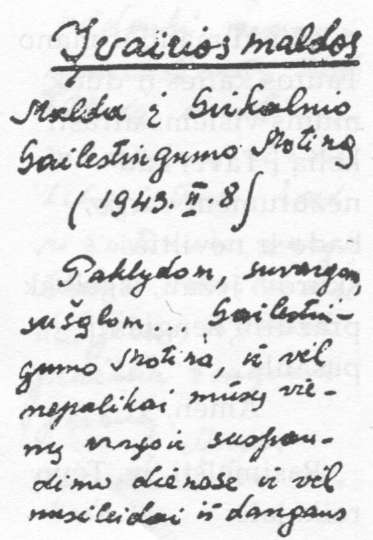 Įvairios maldos
Malda į Girkalnio
Gailestingumo Motiną
(1943.II.8)
Paklydom, suvargom,
sušalom, Gailestin-
gumo Motina, ir vėl
nepalikai mūsų vie-
nų vargo ir suspau-
dimo dienose ir vėl
nusileidai iš dangaus